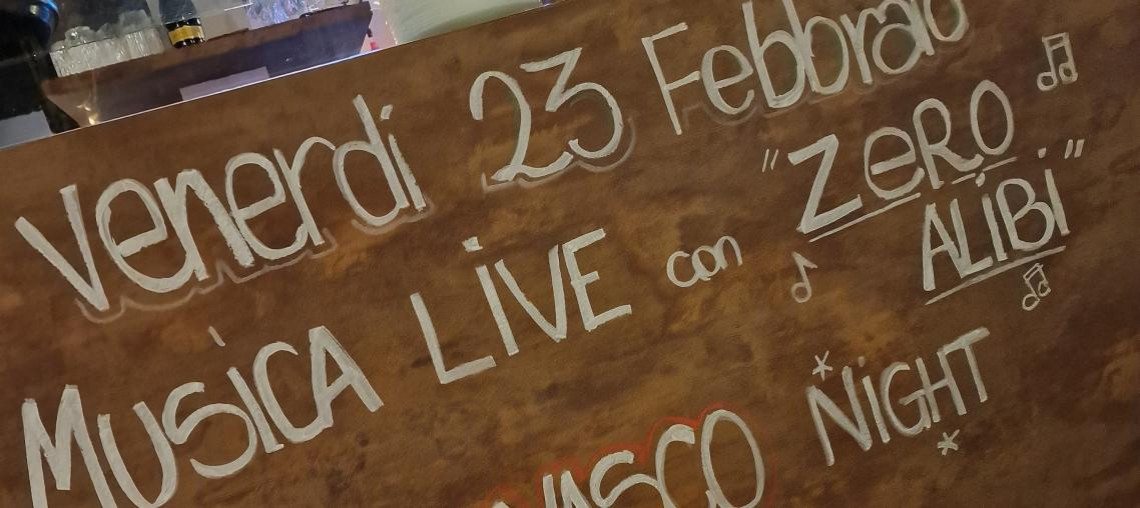 Venerdi 23 Febbraio
MUSICA LIVE con "ZERO ALIBI"
VASCO NIGHT